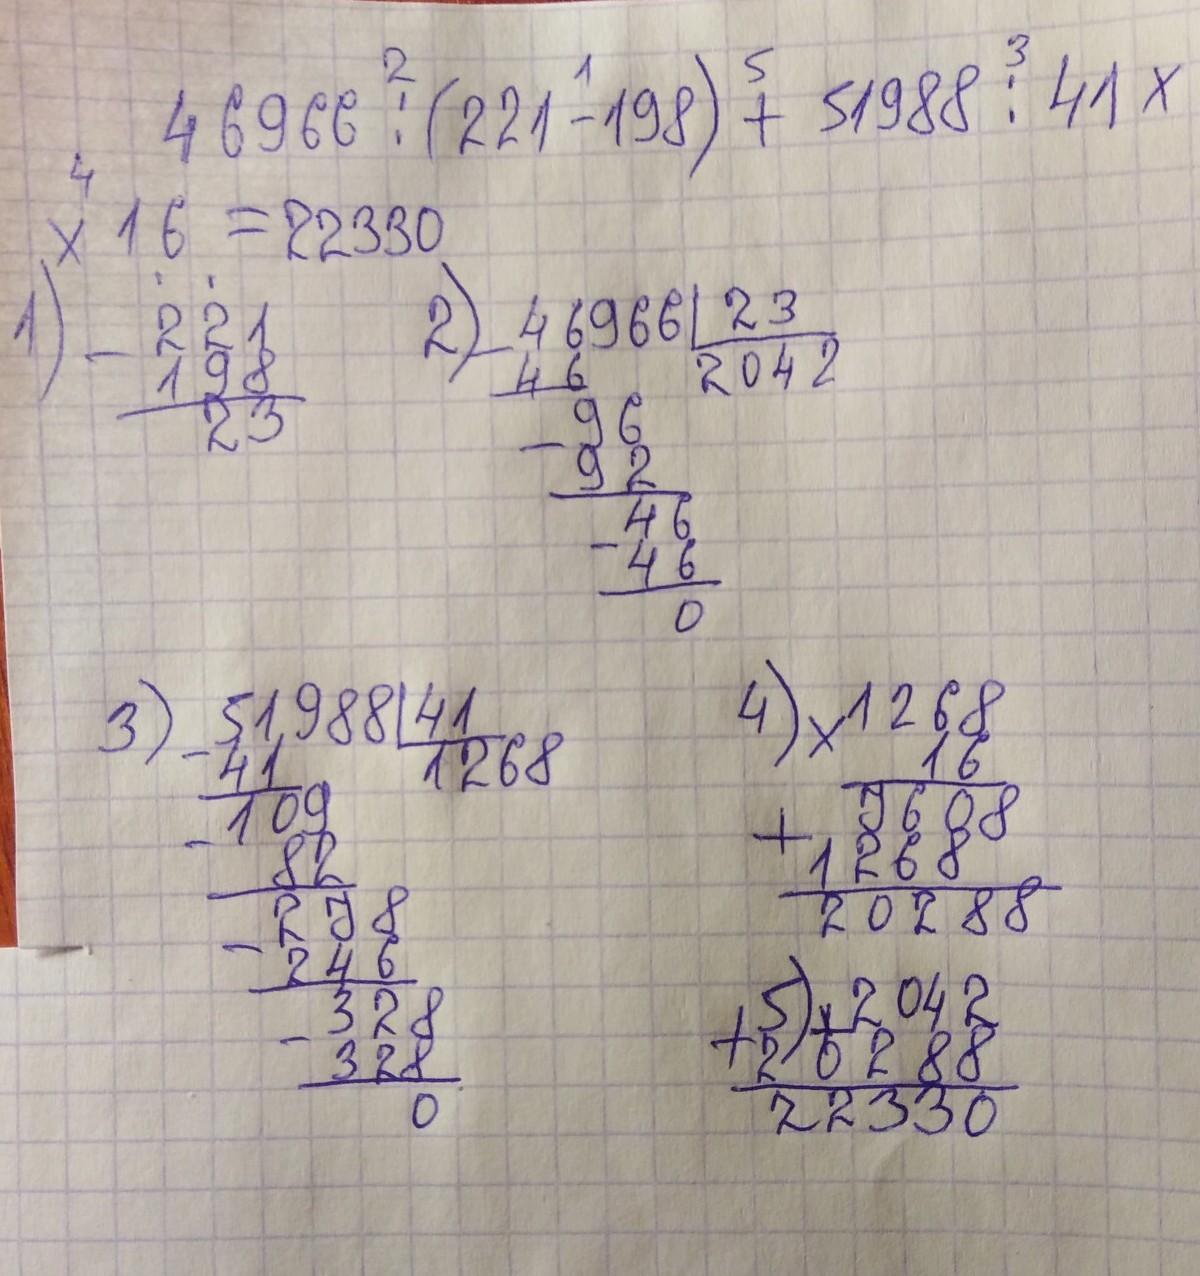 46966 : (221 - 198) + 51988 : 41 x
2 1 5 3
x 16 = 22330
4
1) - 221
198
23
2) - 46966 | 23
46 2042
- 96
92
- 46
46
0
3) - 51988 | 41
41 1268
- 109
82
- 298
246
- 328
328
0
4) x 1268
16
+ 9608
1268
20288
5) + 2042
+ 20288
22330